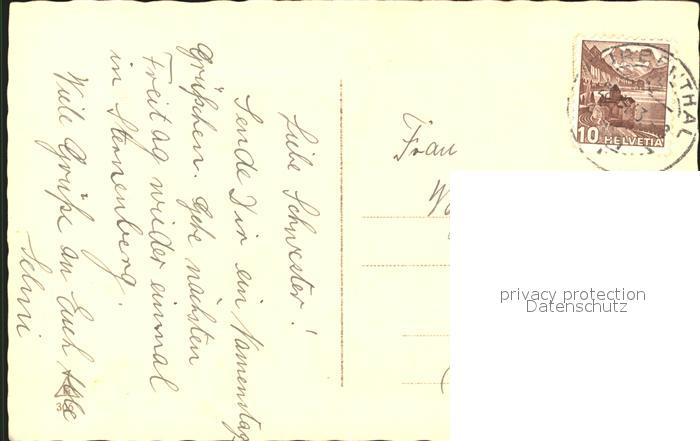 Liebe Schwester!
Sende Dir ein Namenstag
Grüsschen. Gehe nächsten
Freitag wieder einmal
in Sternenberg.
Viele Grüsse an Euch
Selmi
Frau
10 HELVETIA
THAL
privacy protection
Datenschutz